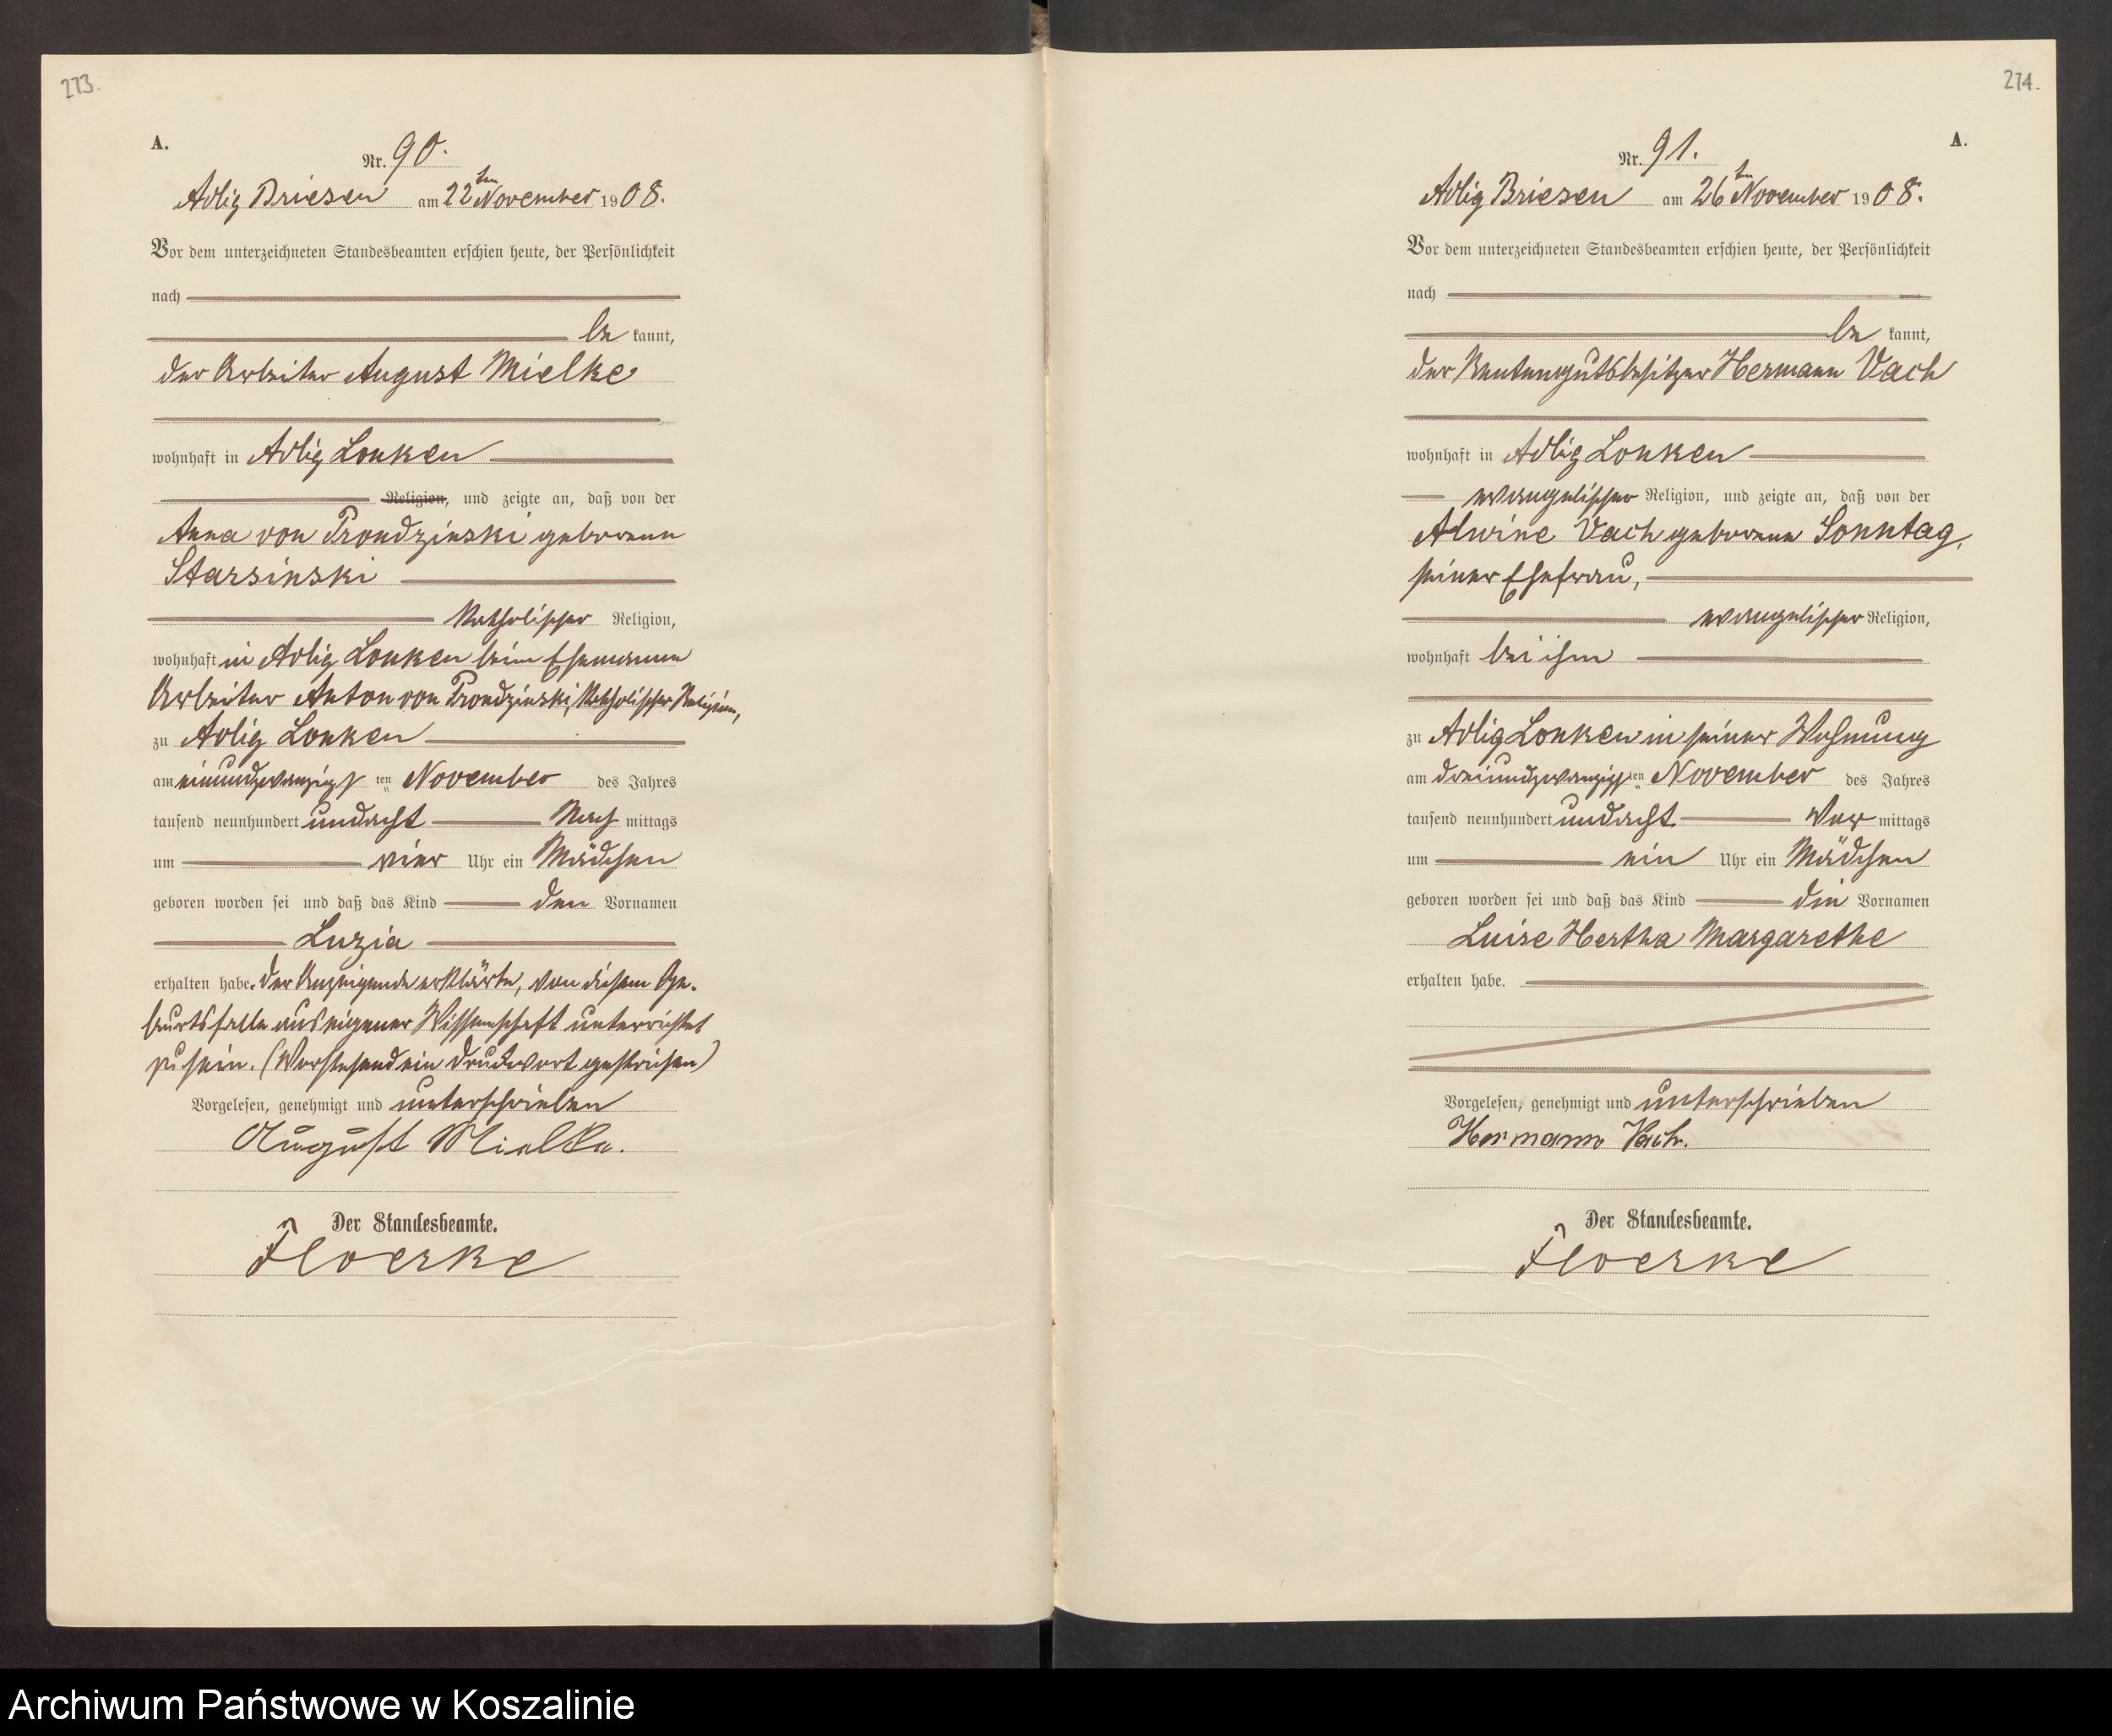 273.
A.
Nr. 90.
Adlig Briesen am 22ten November 1908.
Vor dem unterzeichneten Standesbeamten erschien heute, der Persönlichkeit
nach
be kannt,
der Arbeiter August Mielke
wohnhaft in Adlig Lonken
Religion, und zeigte an, daß von der
Anna von Prondzinski geborene
Starsinski
katholischer Religion,
wohnhaft in Adlig Lonken beim Ehemanne
Arbeiter Anton von Prondzinski, katholischer Religion,
zu Adlig Lonken
am einundzwanzigsten November des Jahres
tausend neunhundert undacht Nach mittags
um vier Uhr ein Mädchen
geboren worden sei und daß das Kind den Vornamen
Luzia
erhalten habe. Der Anzeigende erklärte, von diesem Ge-
burtsfalle aus eigener Wissenschaft unterrichtet
zu sein. (Vorstehend ein Druckwort gestrichen)
Vorgelesen, genehmigt und unterschrieben
August Mielke.
Der Standesbeamte.
Floerke
274.
A.
Nr. 91.
Adlig Briesen am 26ten November 1908.
Vor dem unterzeichneten Standesbeamten erschien heute, der Persönlichkeit
nach
be kannt,
der Rentengutsbesitzer Hermann Vach
wohnhaft in Adlig Lonken
evangelischer Religion, und zeigte an, daß von der
Alwine Vach geborene Sonntag,
seiner Ehefrau,
evangelischer Religion,
wohnhaft bei ihm
zu Adlig Lonken in seiner Wohnung
am dreiundzwanzigsten November des Jahres
tausend neunhundert undacht Vor mittags
um ein Uhr ein Mädchen
geboren worden sei und daß das Kind die Vornamen
Luise Hertha Margarethe
erhalten habe.
Vorgelesen, genehmigt und unterschrieben
Hermann Vach.
Der Standesbeamte.
Floerke
Archiwum Państwowe w Koszalinie